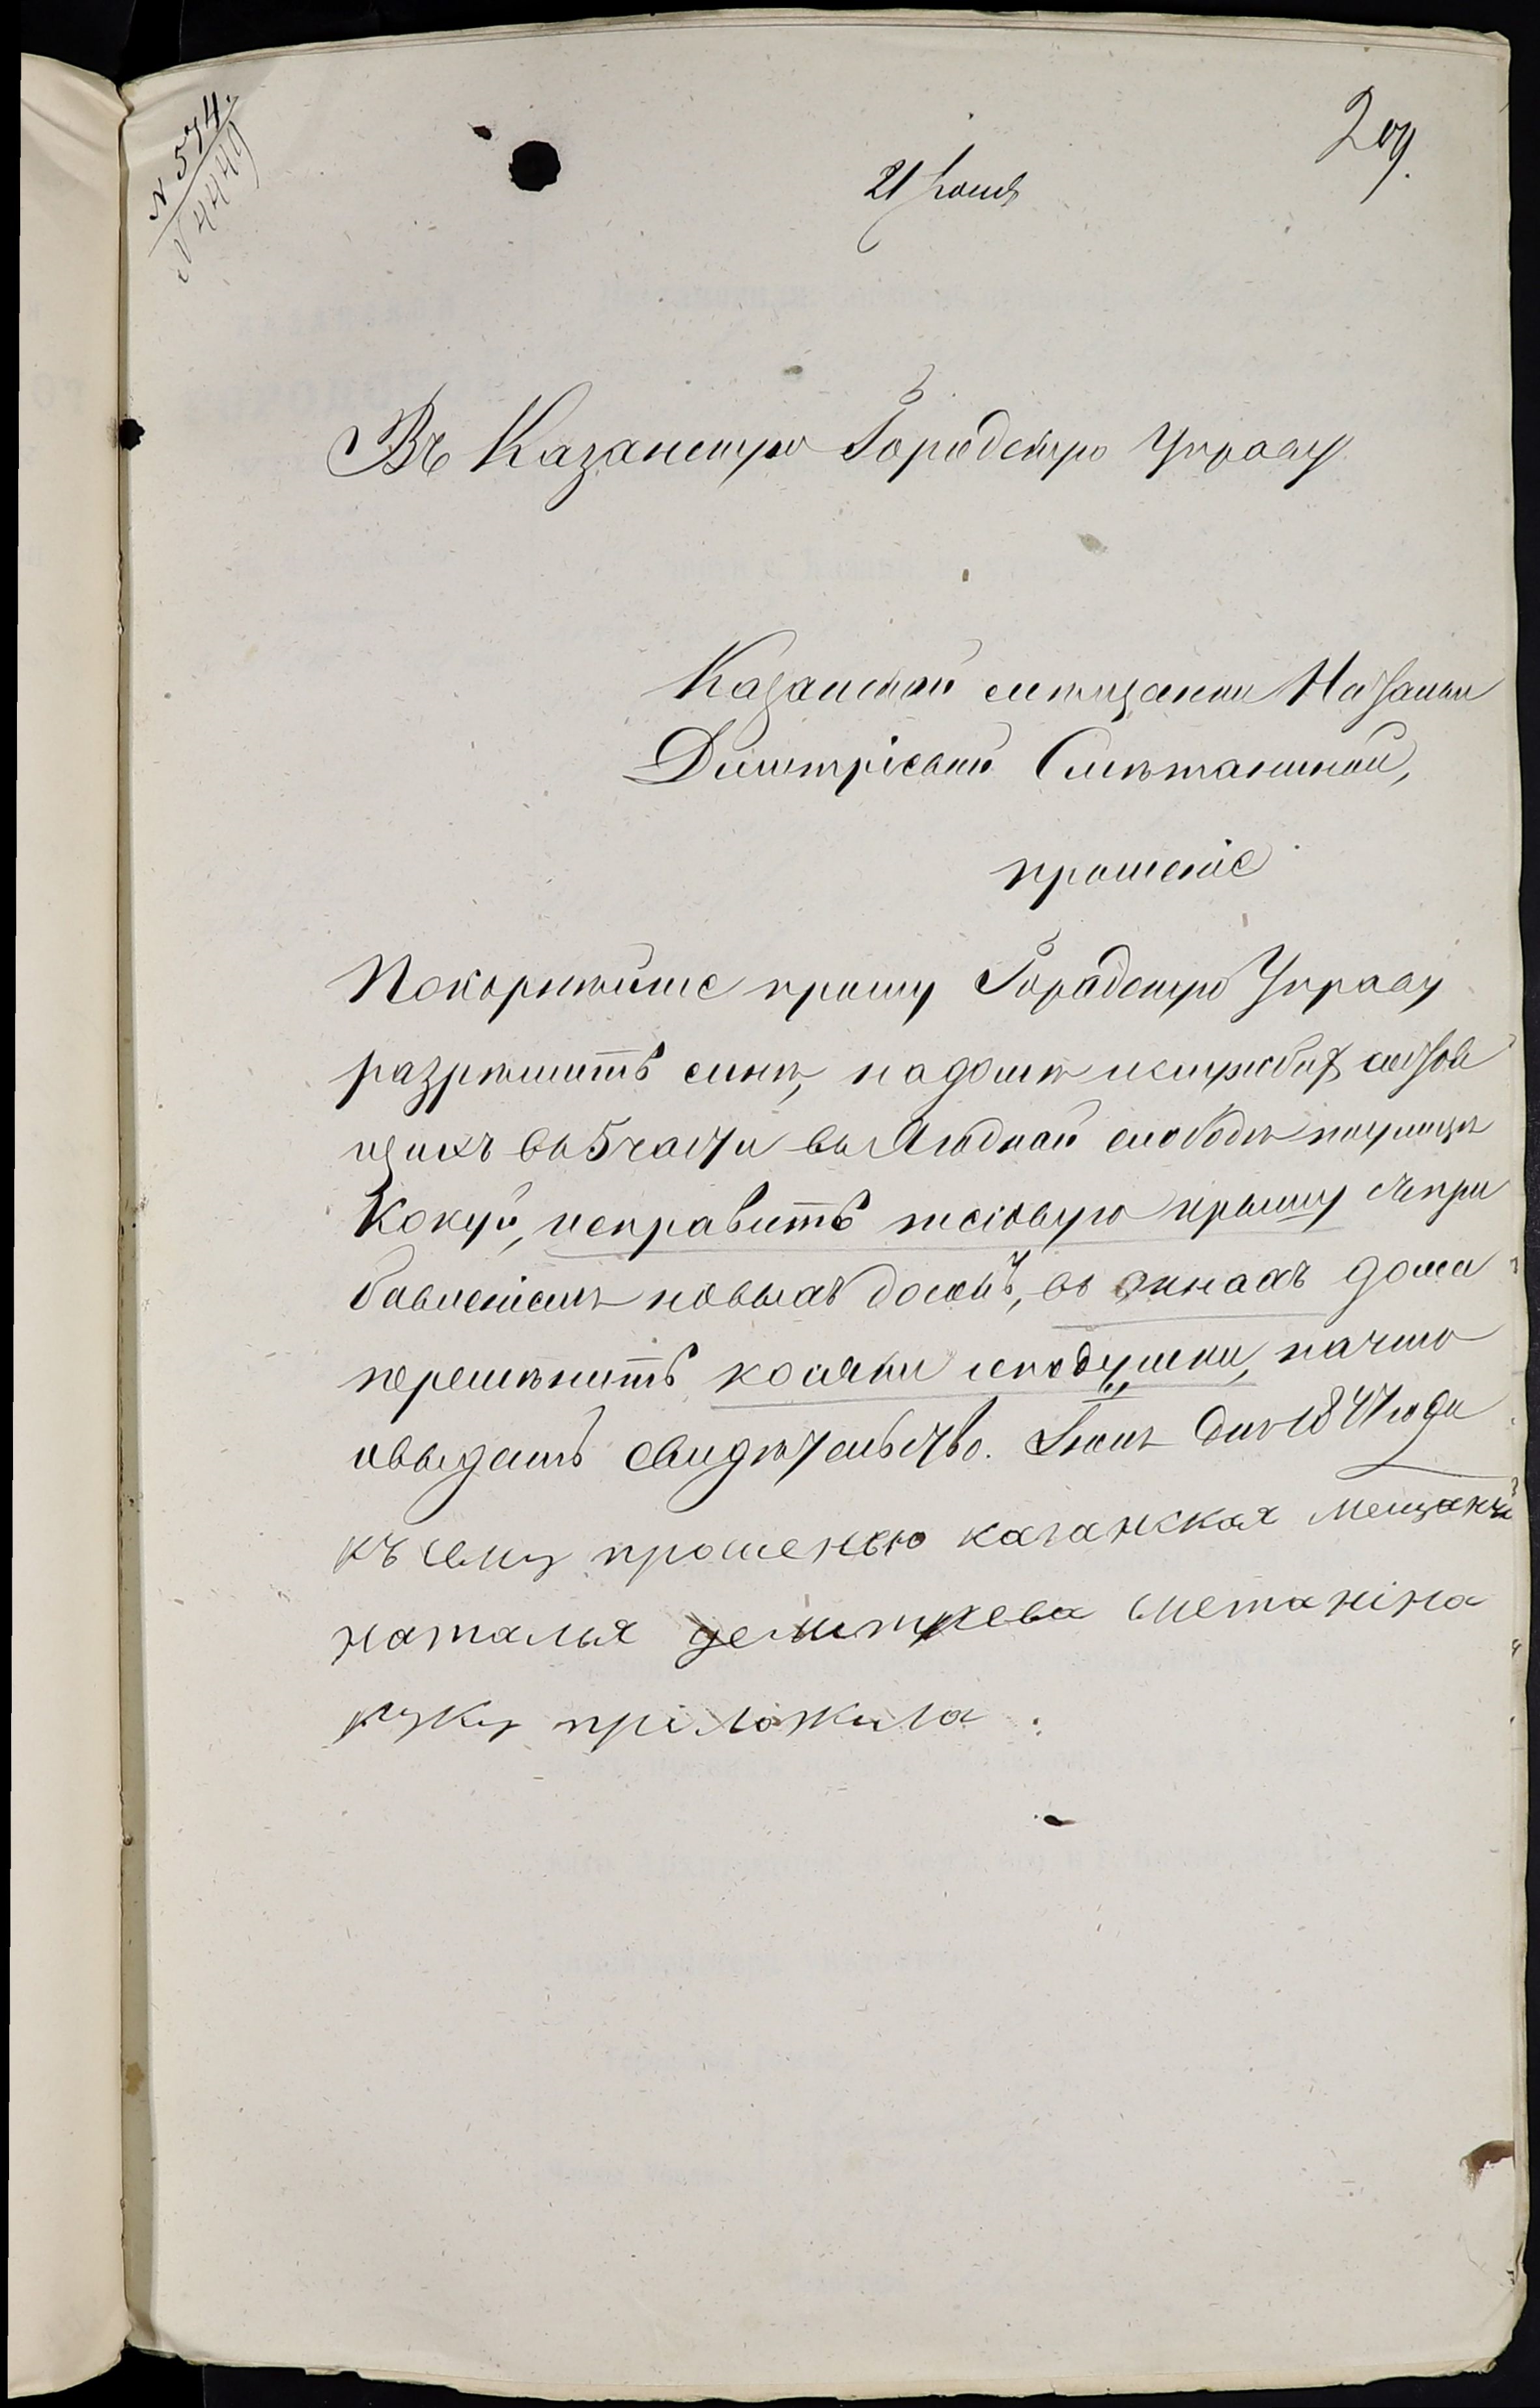 N 574.
N 4449
209.
21 Іюня
Въ Казанскую Городскую Управу
Казанской мѣщанки Натальи
Димитріевой Смѣтаниной,
прошеніе
Покорнѣйше прошу Городскую Управу
разрѣшить мнѣ, на домѣ
въ 5 части въ Ягодной слободѣ поулицѣ
Кокуй, исправить тесовую крышу съ при
бавленіемъ новыхъ досокъ, въ окнахъ дома
перемѣнить косяки иподушки, начто
ивыдать свидѣтельство. Іюня дня 18 года
къ сему прошенью казанская мещанка
наталья демитрева сметаніна
руку пріложила